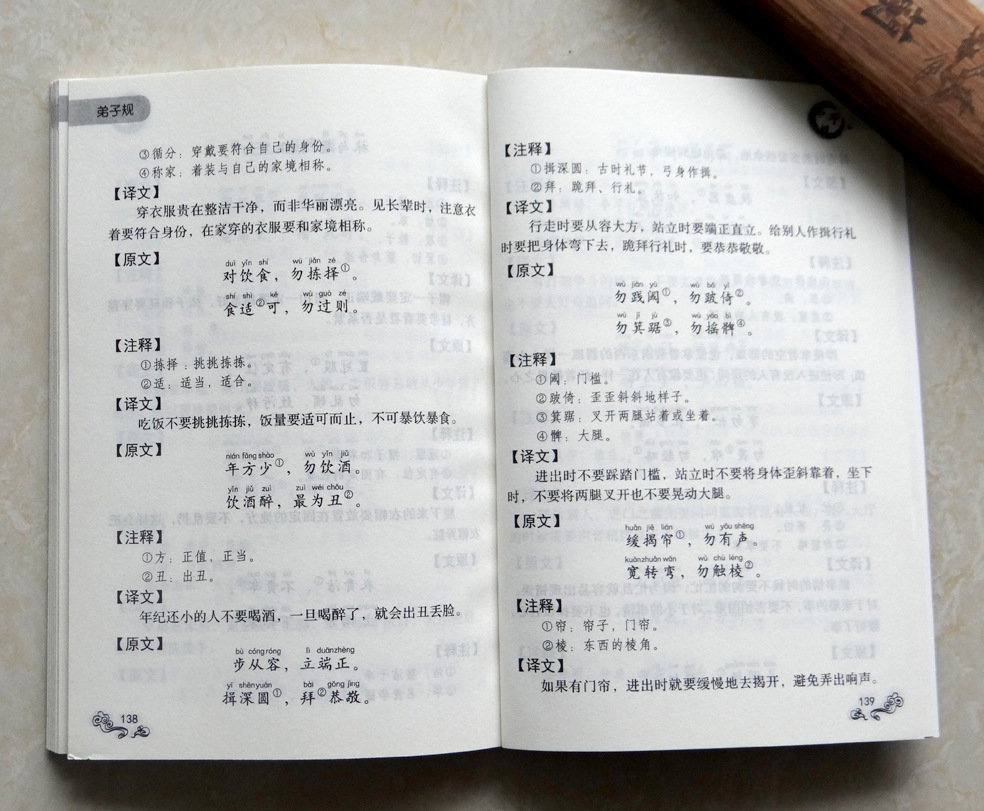 弟子规
③循分：穿戴要符合自己的身份。
④称家：着装与自己的家境相称。
【译文】
穿衣服贵在整洁干净，而非华丽漂亮。见长辈时，注意衣
着要符合身份，在家穿的衣服要和家境相称。
【原文】
duì yǐn shí wù jiǎn zé
对饮食，勿拣择①。
shí shì kě wù guò zé
食适②可，勿过则。
【注释】
①拣择：挑挑拣拣。
②适：适当，适合。
【译文】
吃饭不要挑挑拣拣，饭量要适可而止，不可暴饮暴食。
【原文】
nián fāng shào wù yǐn jiǔ
年方少①，勿饮酒。
yǐn jiǔ zuì zuì wéi chǒu
饮酒醉，最为丑②。
【注释】
①方：正值，正当。
②丑：出丑。
【译文】
年纪还小的人不要喝酒，一旦喝醉了，就会出丑丢脸。
【原文】
bù cóng róng lì duān zhèng
步从容，立端正。
yī shēn yuán bài gōng jìng
揖深圆①，拜②恭敬。
138
【注释】
①揖深圆：古时礼节，弓身作揖。
②拜：跪拜、行礼。
【译文】
行走时要从容大方，站立时要端正直立。给别人作揖行礼
时要把身体弯下去，跪拜行礼时，要恭恭敬敬。
【原文】
wù jiàn yù wù bǒ yǐ
勿践阈①，勿跛倚②。
wù jī jù wù yáo bì
勿箕踞③，勿摇髀④。
【注释】
①阈：门槛。
②跛倚：歪歪斜斜地样子。
③箕踞：叉开两腿站着或坐着。
④髀：大腿。
【译文】
进出时不要踩踏门槛，站立时不要将身体歪斜靠着，坐下
时，不要将两腿叉开也不要晃动大腿。
【原文】
huǎn jiē lián wù yǒu shēng
缓揭帘①，勿有声。
kuān zhuǎn wān wù chù léng
宽转弯，勿触棱②。
【注释】
①帘：帘子，门帘。
②棱：东西的棱角。
【译文】
如果有门帘，进出时就要缓慢地去揭开，避免弄出响声。
139